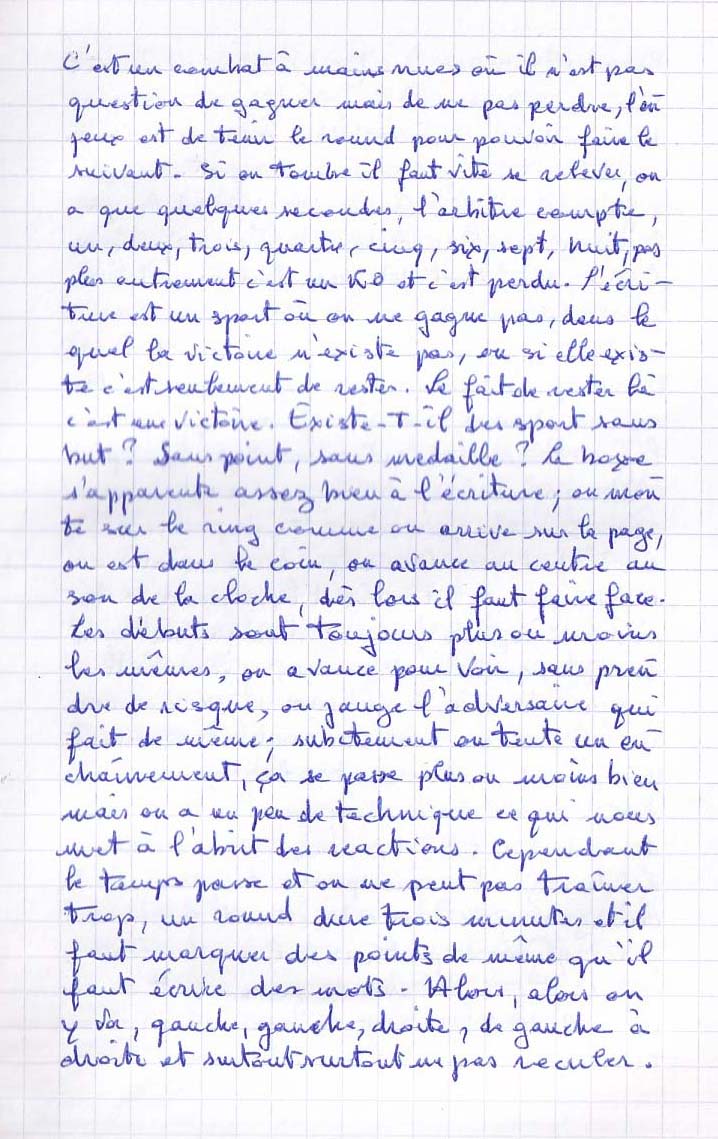 C'est un combat à mains nues où il n'est pas
question de gagner mais de ne pas perdre, l'en
jeux est de tenir le round pour pouvoir faire le
suivant. Si on tombe il faut vite se relever, on
a que quelques secondes, l'arbitre compte,
un, deux, trois, quatre, cinq, six, sept, huit, pas
plus autrement c'est un KO et c'est perdu. L'écri-
ture est un sport où on ne gagne pas, dans le
quel la victoire n'existe pas, ou si elle exis-
te c'est seulement de rester. Le fait de rester là
c'est une victoire. Existe-T-il des sport sans
but ? Sans point, sans medaille ? La boxe
s'apparente assez bien à l'écriture ; on mon
te sur le ring comme on arrive sur la page,
on est dans le coin, on avance au centre au
son de la cloche, dès lors il faut faire face.
Les débuts sont toujours plus ou moins
les mêmes, on avance pour voir, sans pren
dre de risque, on jauge l'adversaire qui
fait de même ; subitement on tente un en
chaînement, ça se passe plus ou moins bien
mais on a un peu de technique ce qui nous
met à l'abrit des reactions. Cependant
le temps passe et on ne peut pas traîner
trop, un round dure trois minutes et il
faut marquer des points de même qu'il
faut écrire des mots. Alors, alors on
y va, gauche, gauche, droite, de gauche à
droite et surtout surtout ne pas reculer.